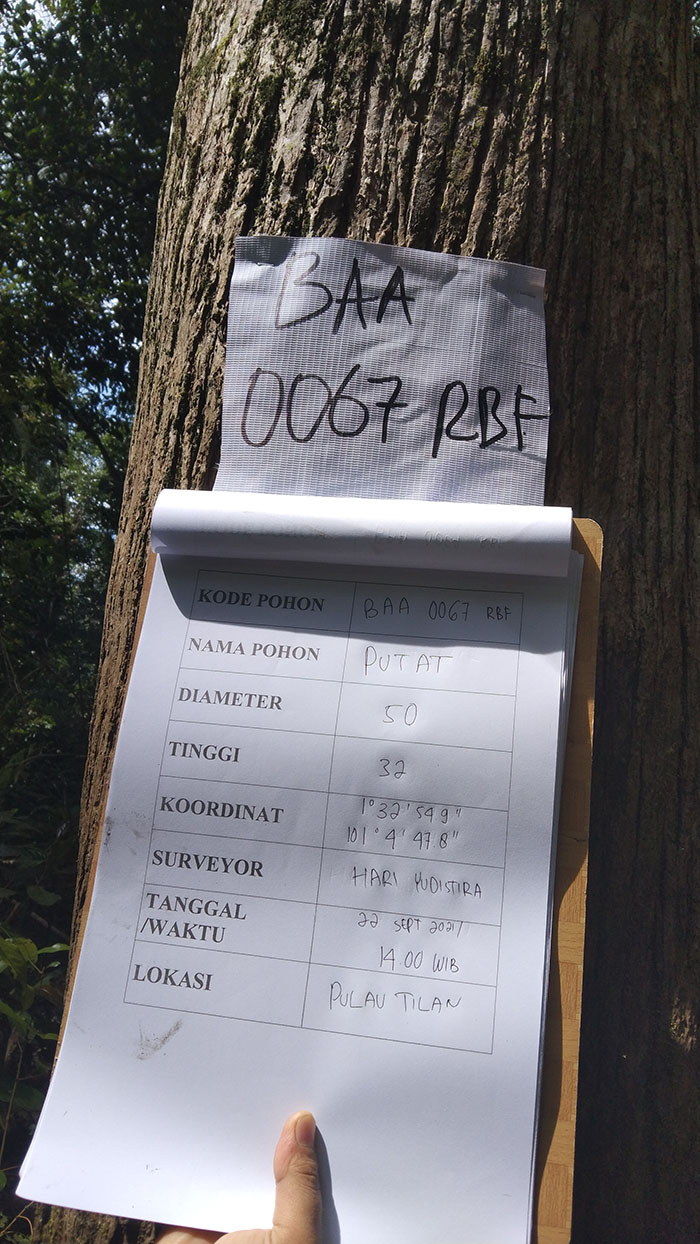 BAA
0067 RBF
KODE POHON BAA 0067 RBF
NAMA POHON PUTAT
DIAMETER 50
TINGGI 32
KOORDINAT 1°32'54.9"
101°4'47.8"
SURVEYOR HARI YUDISTIRA
TANGGAL 22 SEPT 2021/
/WAKTU 14.00 WIB
LOKASI PULAU TILAN